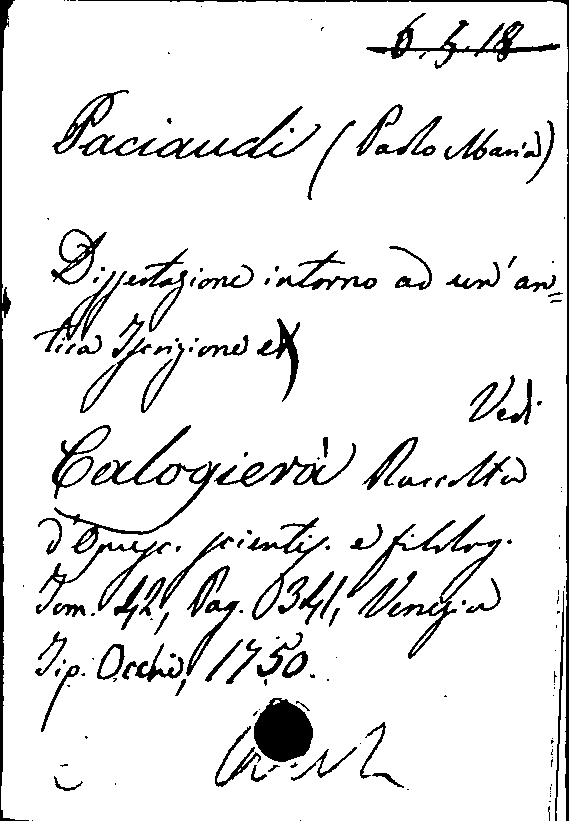 6.5.18
Paciaudi (Paolo Maria)
Dissertazione intorno ad un' an=
tica Iscrizione
Vedi
Calogierà Raccolta
d'Opusc. scientif. e filolog.
Tom. 42, Pag. 0341, Venezia
Tip. Occhi, 1750.